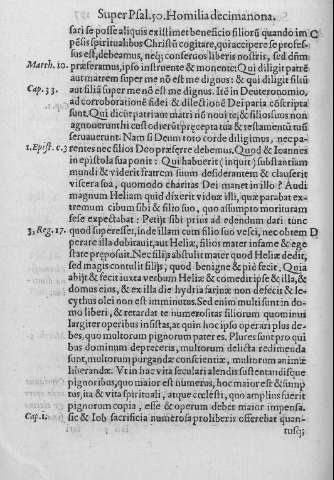 Super Psal. 50. Homilia decimanona.
sari se posse aliquis existimet beneficio filiorũ quando im C
pẽsis spiritualibus Christũ cogitare, qui accipere se profes-
sus est, debeamus, neq; conseruos liberis nostris, sed dñm
Matth. 10. præferamus, ipso instruente & monente: Qui diligit patrẽ
aut matrem super me nõ est me dignus: & qui diligit filiũ
Cap. 33. aut filiã super me nõ est me dignus. Itẽ in Deuteronomio,
ad corroborationẽ fidei & dilectionẽ Dei paria cõscripta
sunt. Qui dicũt patri aut matri nõ noui te, & filios suos non
agnouerunt hi custodierũt præcepta tua & testamentũ tuũ
seruauerunt. Nam si Deum toto corde diligimus, nec pa-
1. Epist. c. 3 rentes nec filios Deo præferre debemus. Quod & Ioannes
in epistola sua ponit: Qui habuerit (inquit) substantiam
mundi & viderit fratrem suum desiderantem & clauserit
viscera sua, quomodo charitas Dei manet in illo? Audi
magnum Heliam quid dixerit viduæ illi, quæ parabat ex-
tremum cibum sibi & filio suo, quo assumpto morituram
sese expectabat: Petijt sibi prius ad edendum dari tunc
3. Reg. 17. quod superesset, inde illam cum filio suo vesci, nec obtem D
perare illa dubitauit, aut Heliæ, filios mater infame & ege
state præposuit. Nec filijs abstulit mater quod Heliæ dedit,
sed magis contulit filijs, quod benigne & piè fecit. Quia
abijt & fecit iuxta verbum Heliæ & comedit ipse & illa, &
domus eius, & ex illa die hydria farinæ non defecit & le-
cythus olei non est imminutus. Sed enim multi sunt in do-
mo liberi, & retardat te numerositas filiorum quo minus
largiter operibus insistas, at quin hoc ipso operari plus de-
bes, quo multorum pignorum pater es. Plures sunt pro qui
bus dominum depreceris, multorum delicta redimenda
sunt, multorum purgandæ conscientiæ, multorum animæ
liberandæ. Vt in hac vita seculari alendis sustentandisque
pignoribus, quo maior est numerus, hoc maior est & sump
tus, ita & vita spirituali, atque cœlesti, quo amplius fuerit
pignorum copia, esse & operum debet maior impensa.
Cap. 1. sic & Iob sacrificia numerosa pro liberis offerebat quan-
tusq;